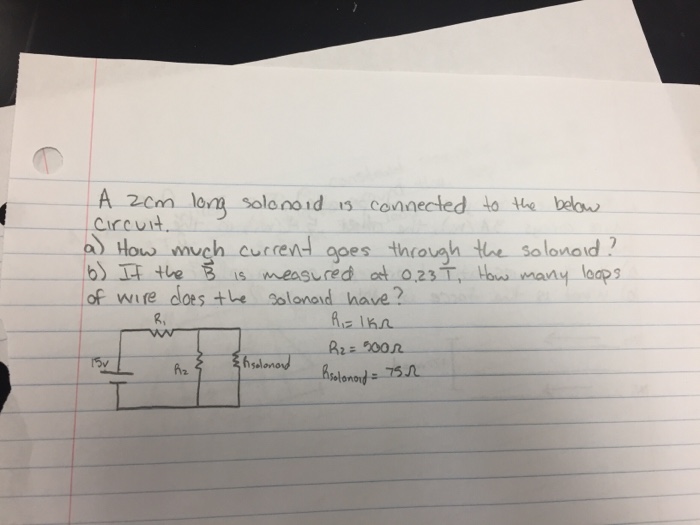 A 2cm long solonoid is connected to the below
circuit.
a) How much current goes through the solonoid?
b) If the B⃗ is measured at 0.23T, How many loops
of wire does the solonoid have?
R₁
R₁= 1kΩ
15v
R₂
Rsolonoid
R₂= 500Ω
Rsolonoid = 75Ω